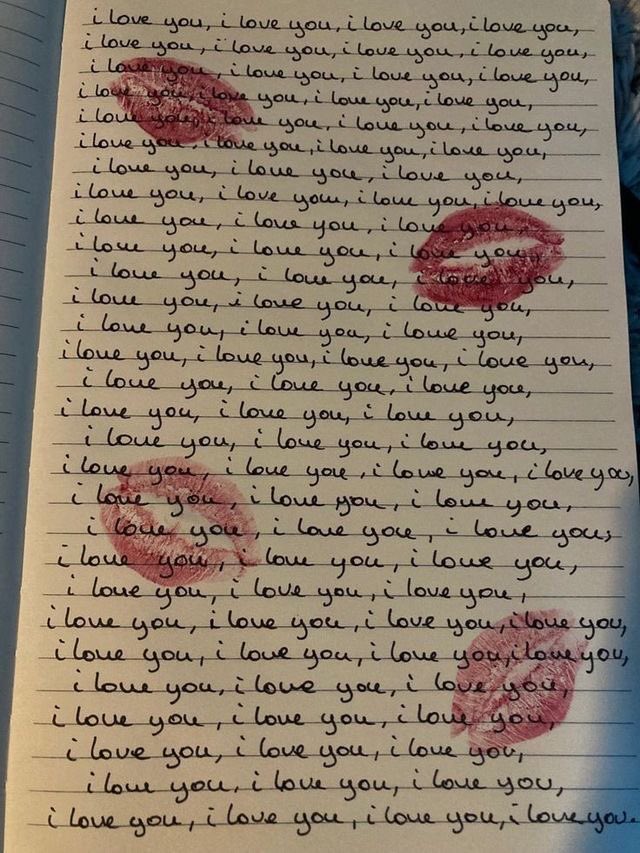 i love you, i love you, i love you, i love you,
i love you, i love you, i love you, i love you,
i love you, i love you, i love you, i love you,
i love you, i love you, i love you, i love you,
i love you, i love you, i love you, i love you,
i love you, i love you, i love you, i love you,
i love you, i love you, i love you,
i love you, i love you, i love you, i love you,
i love you, i love you, i love you,
i love you, i love you, i love you,
i love you, i love you, i love you,
i love you, i love you, i love you,
i love you, i love you, i love you,
i love you, i love you, i love you, i love you,
i love you, i love you, i love you,
i love you, i love you, i love you,
i love you, i love you, i love you,
i love you, i love you, i love you, i love you,
i love you, i love you, i love you,
i love you, i love you, i love you,
i love you, i love you, i love you,
i love you, i love you, i love you,
i love you, i love you, i love you, i love you,
i love you, i love you, i love you, i love you,
i love you, i love you, i love you,
i love you, i love you, i love you,
i love you, i love you, i love you,
i love you, i love you, i love you,
i love you, i love you, i love you, i love you.